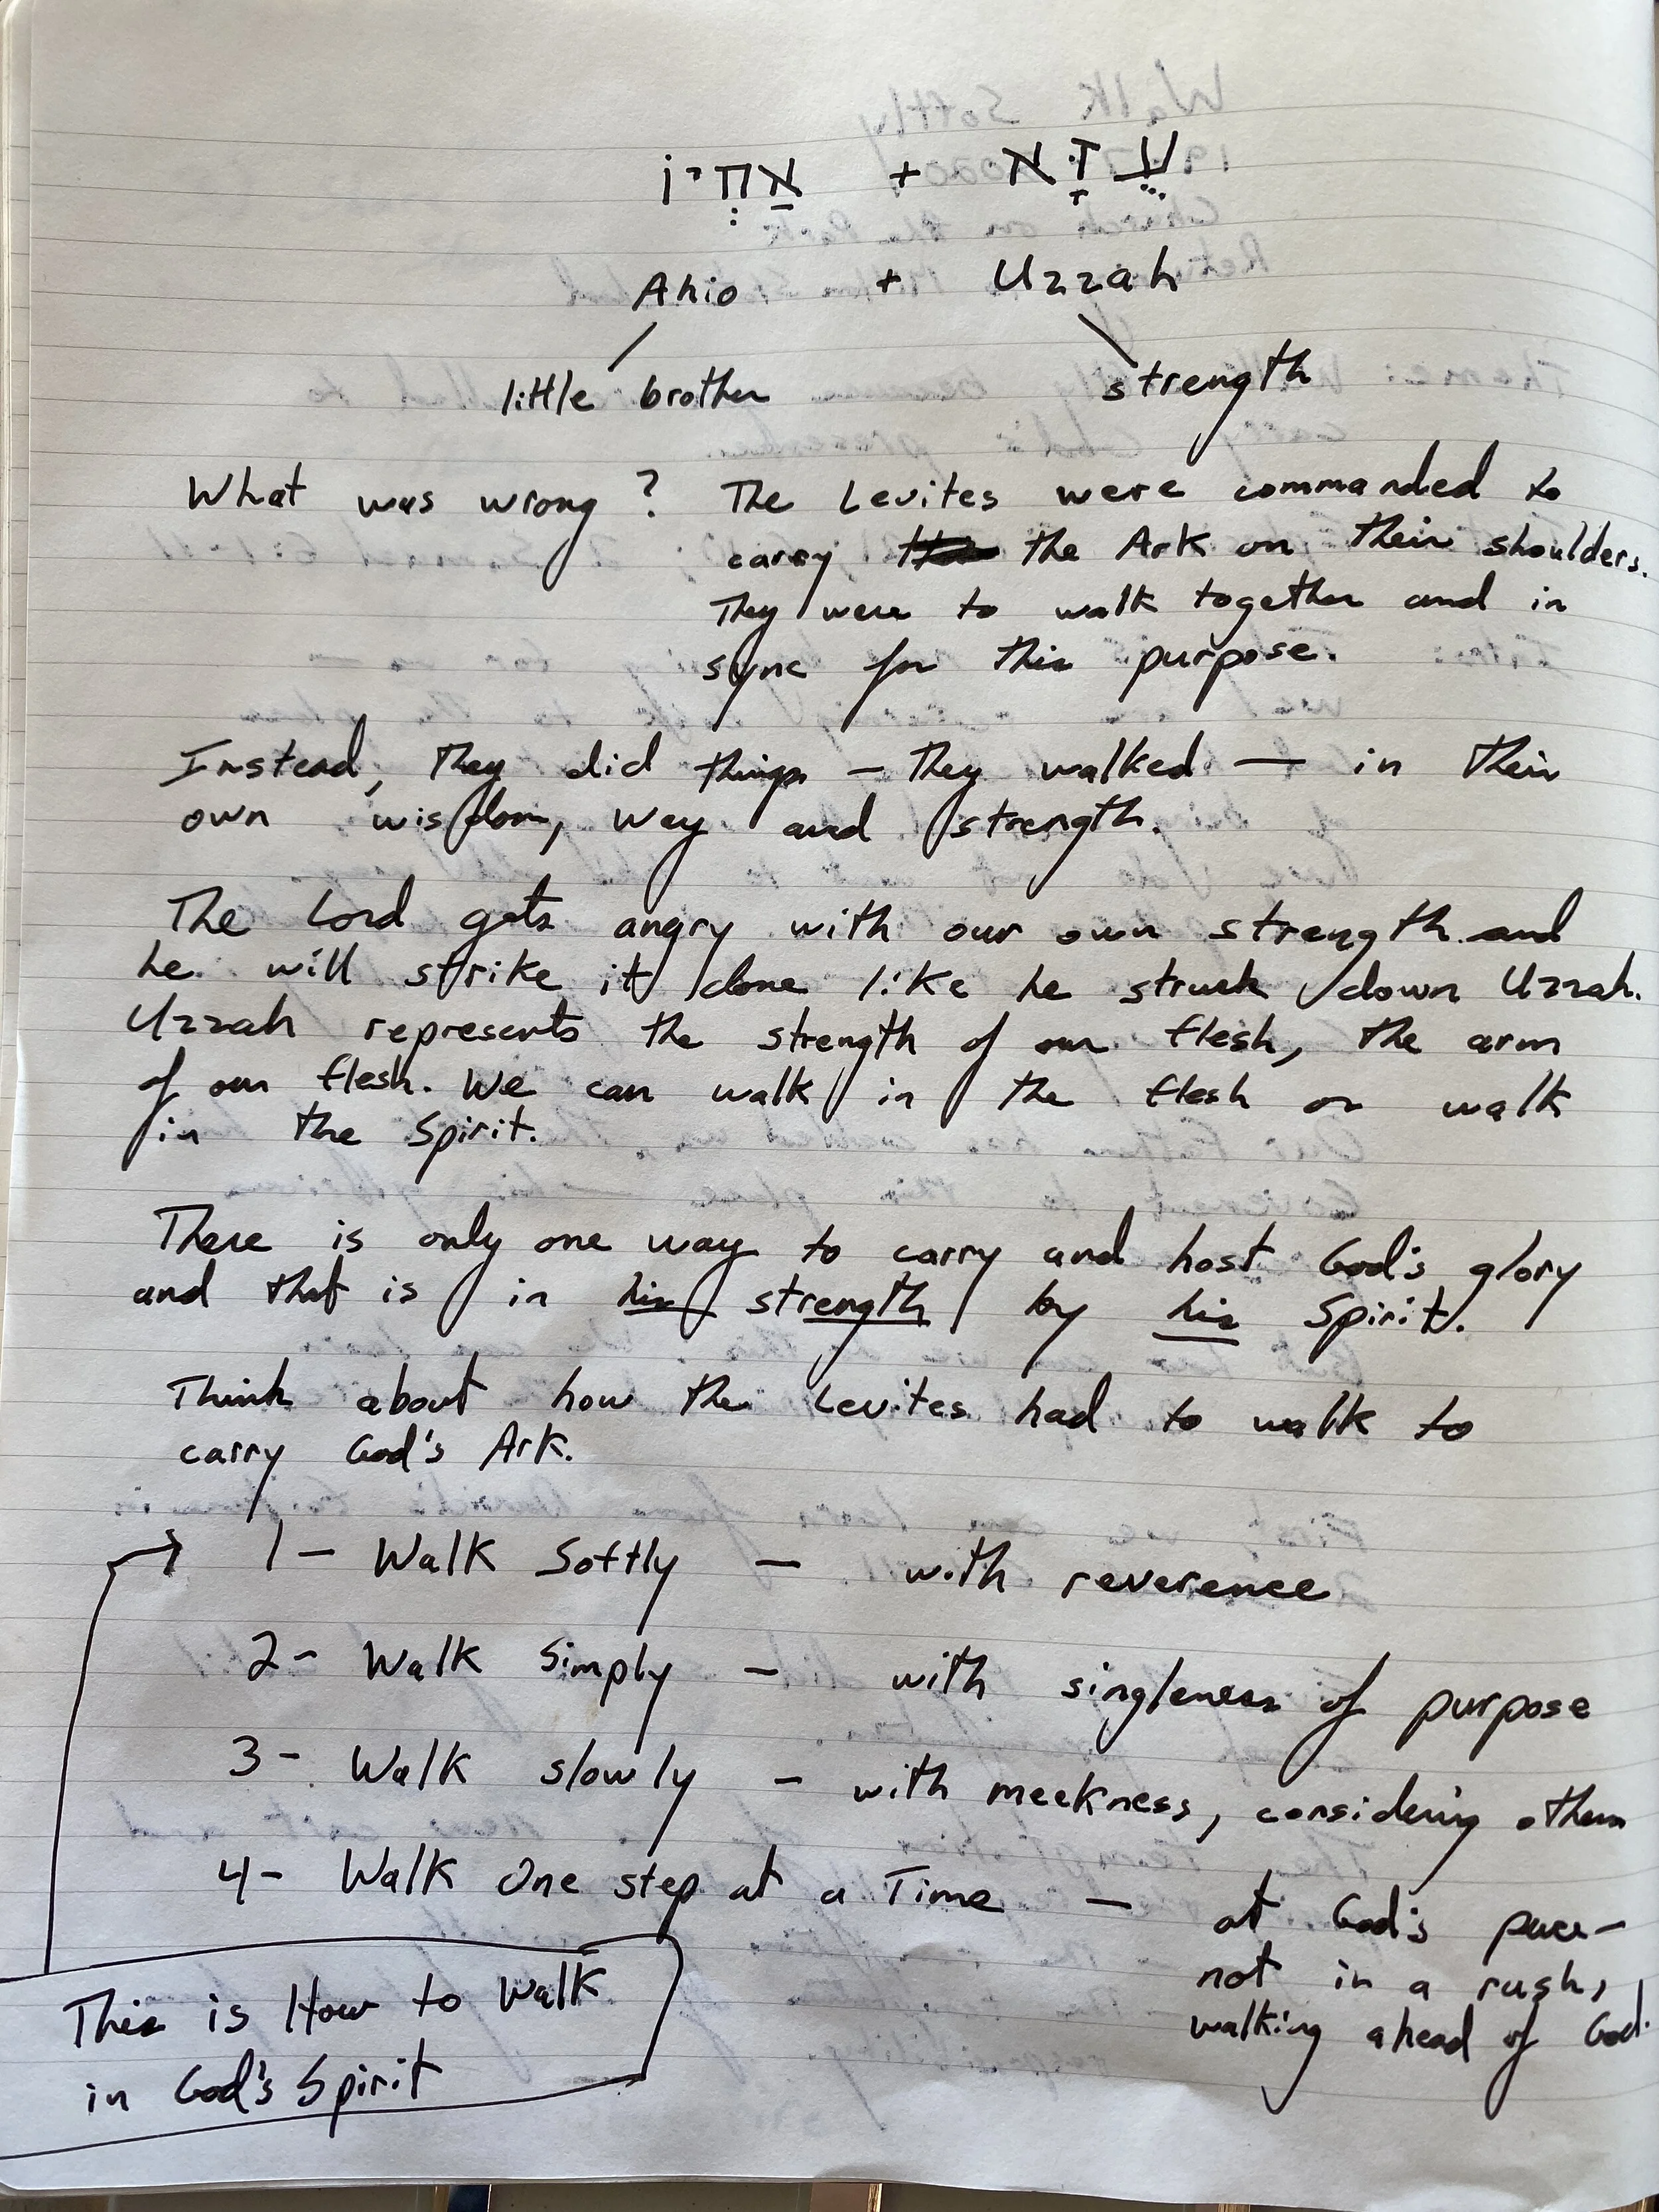 אַחְיוֹ + עֻזָּא
Ahio + Uzzah
little brother strength
What was wrong? The Levites were commanded to
carry the Ark on their shoulders.
They were to walk together and in
sync for this purpose.
Instead, they did things — they walked — in their
own wisdom, way and strength.
The Lord gets angry with our own strength and
he will strike it done like he struck down Uzzah.
Uzzah represents the strength of our flesh, the arm
of our flesh. We can walk in the flesh or walk
in the Spirit.
There is only one way to carry and host God's glory
and that is in his strength by his Spirit.
Think about how the Levites had to walk to
carry God's Ark.
1- Walk Softly - with reverence
2- Walk Simply - with singleness of purpose
3- Walk slowly - with meekness, considering others
4- Walk One step at a Time - at God's pace-
not in a rush,
walking ahead of God.
This is How to Walk
in God's Spirit